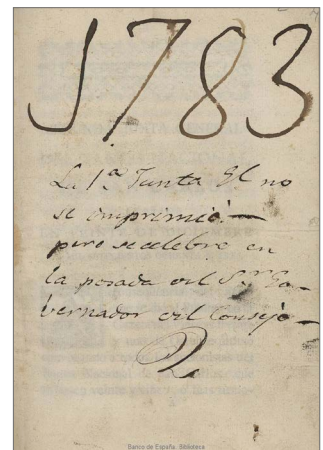 1783
La 1.ª Junta Gl no
se imprimió.—
pero se celebro en
la posada del S.or Go-
vernador del Consejo—
Banco de España. Biblioteca